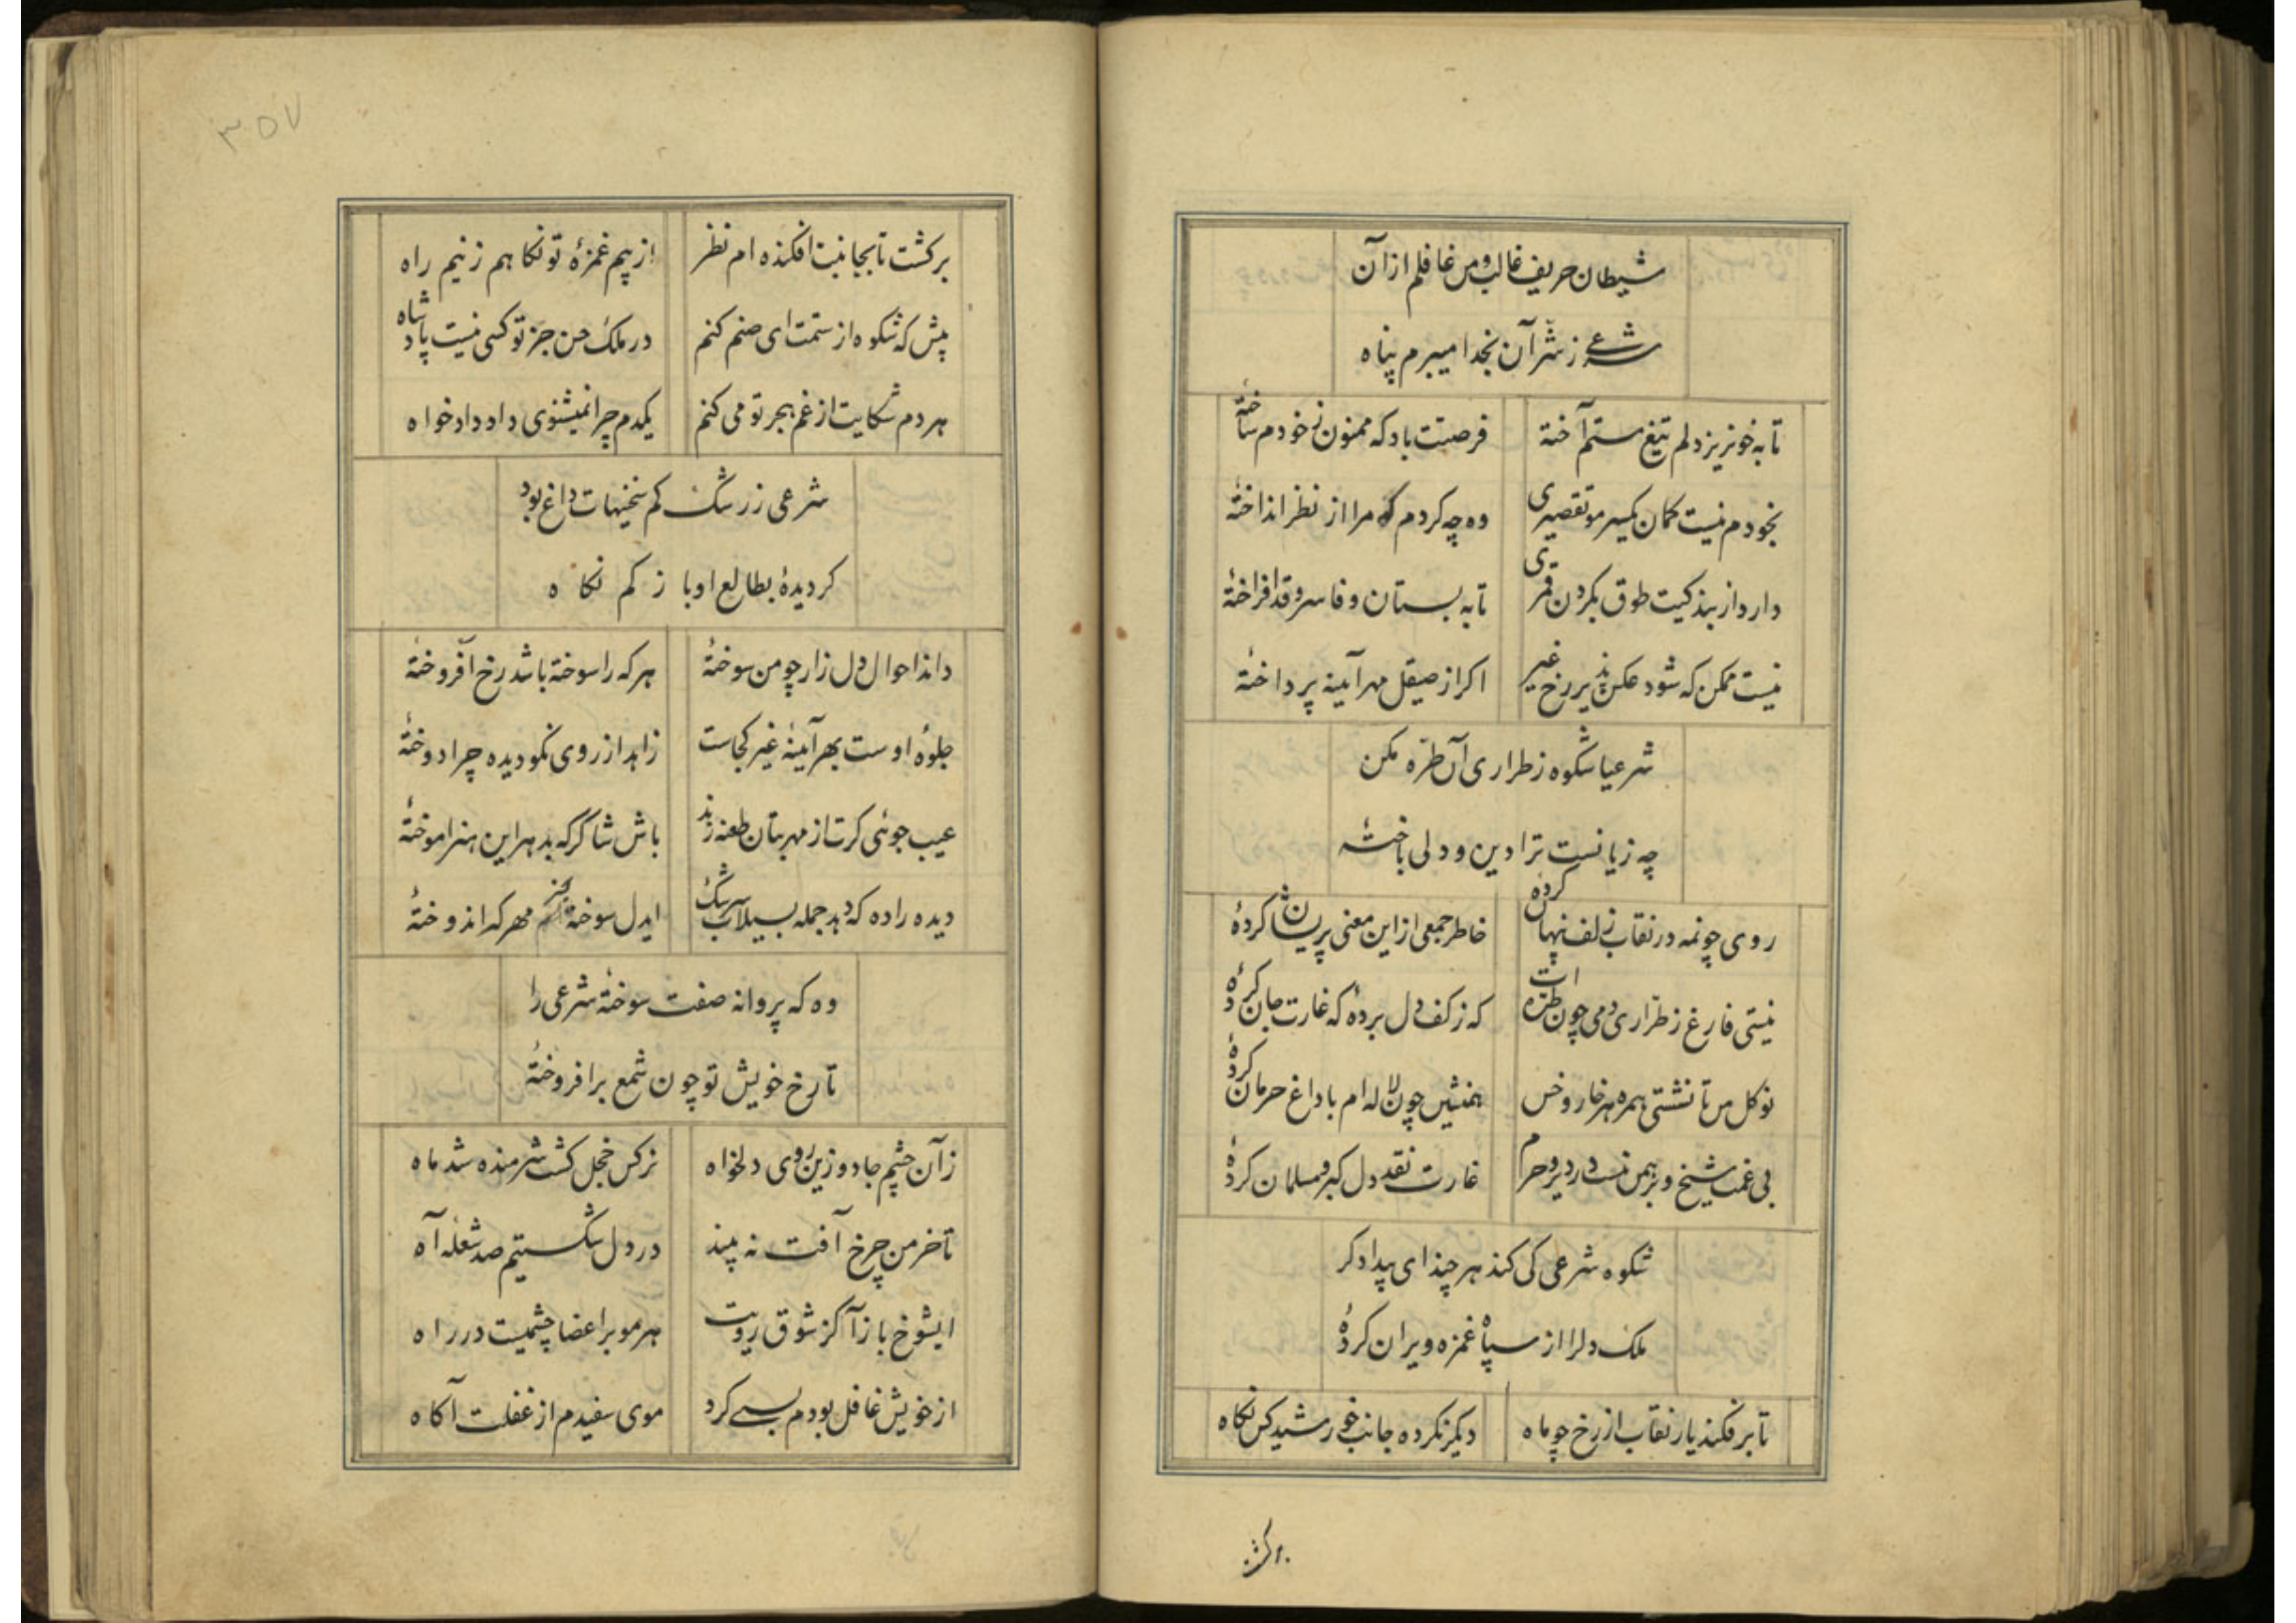 شیطان حریف غالب و من غافلم از آن
شرعی ز شر آن بخدا میبرم پناه
تا به خونریز دلم تیغ ستم آختهٔ
فرصتت باد که ممنون ز خودم ساختهٔ
بخودم نیست گمان یکسر مو تقصیری
وه چه کردم که مرا از نظر انداختهٔ
دارد از بندکیت طوق بکردن قمری
تا به بستان وفا سرو قد افراختهٔ
نیست ممکن که شود عکس پذیر رخ غیر
اکر از صیقل مهر آینه پرداختهٔ
شرعیا شکوه ز طراری آن طره مکن
چه زیانست ترا دین و دلی باختهٔ
روی چونمه در نقاب زلف پنهان کردهٔ
خاطر جمعی از این معنی پریشان کردهٔ
نیستی فارغ ز طراری دمی چون طره ات
که ز کف دل بردهٔ که غارت جان کردهٔ
نوکل من تا نشستی همره هر خار و خس
همنشین چون لاله ام با داغ حرمان کردهٔ
بی غمت شیخ و برهمن نیست در دیر و حرم
غارت نقد دل کبر و مسلمان کردهٔ
شکوه شرعی کی کند هر چند ای بیدادکر
ملک دلرا از سپاه غمزه ویران کردهٔ
تا برفکند یار نقاب از رخ چو ماه
دیکر نکرده جانب خورشید کس نکاه
برکشت
۳۵۷
برکشت تا بجانبت افکنده ام نظر
از بیم غمزهٔ تو نکاهم ز نیم راه
پیش که شکوه از ستمت ای صنم کنم
در ملک حسن جز تو کسی نیست پادشاه
هر دم شکایت از غم هجر تو می کنم
یکدم چرا نمیشنوی داد دادخواه
شرعی ز رشک کم سخنیهات داغ بود
کردیدهٔ بطالع او باز کم نکاه
داند احوال دل زار چو من سوختهٔ
هر که را سوخته باشد رخ افروختهٔ
جلوهٔ اوست بهر آینهٔ غیر کجاست
زاهد از روی نکو دیده چرا دوختهٔ
عیب جوئی کرت از مهر بتان طعنه زند
باش شاکر که بدهر این هنر اموختهٔ
دیده را ده که دهد جمله بسیلاب سرشک
ایدل سوخته مهر که اندوختهٔ
وه که پروانه صفت سوختهٔ شرعی را
تا رخ خویش تو چون شمع برافروختهٔ
زآن چشم جادو زین روی دلخواه
نرکس خجل کشت شرمنده شد ماه
تا خرمن چرخ آفت نه بیند
در دل شکستیم صد شعله آه
ایشوخ بازآ کز شوق رویت
هر مو بر اعضا چشمیست در راه
از خویش غافل بودم بسی کرد
موی سفیدم از غفلت آکاه